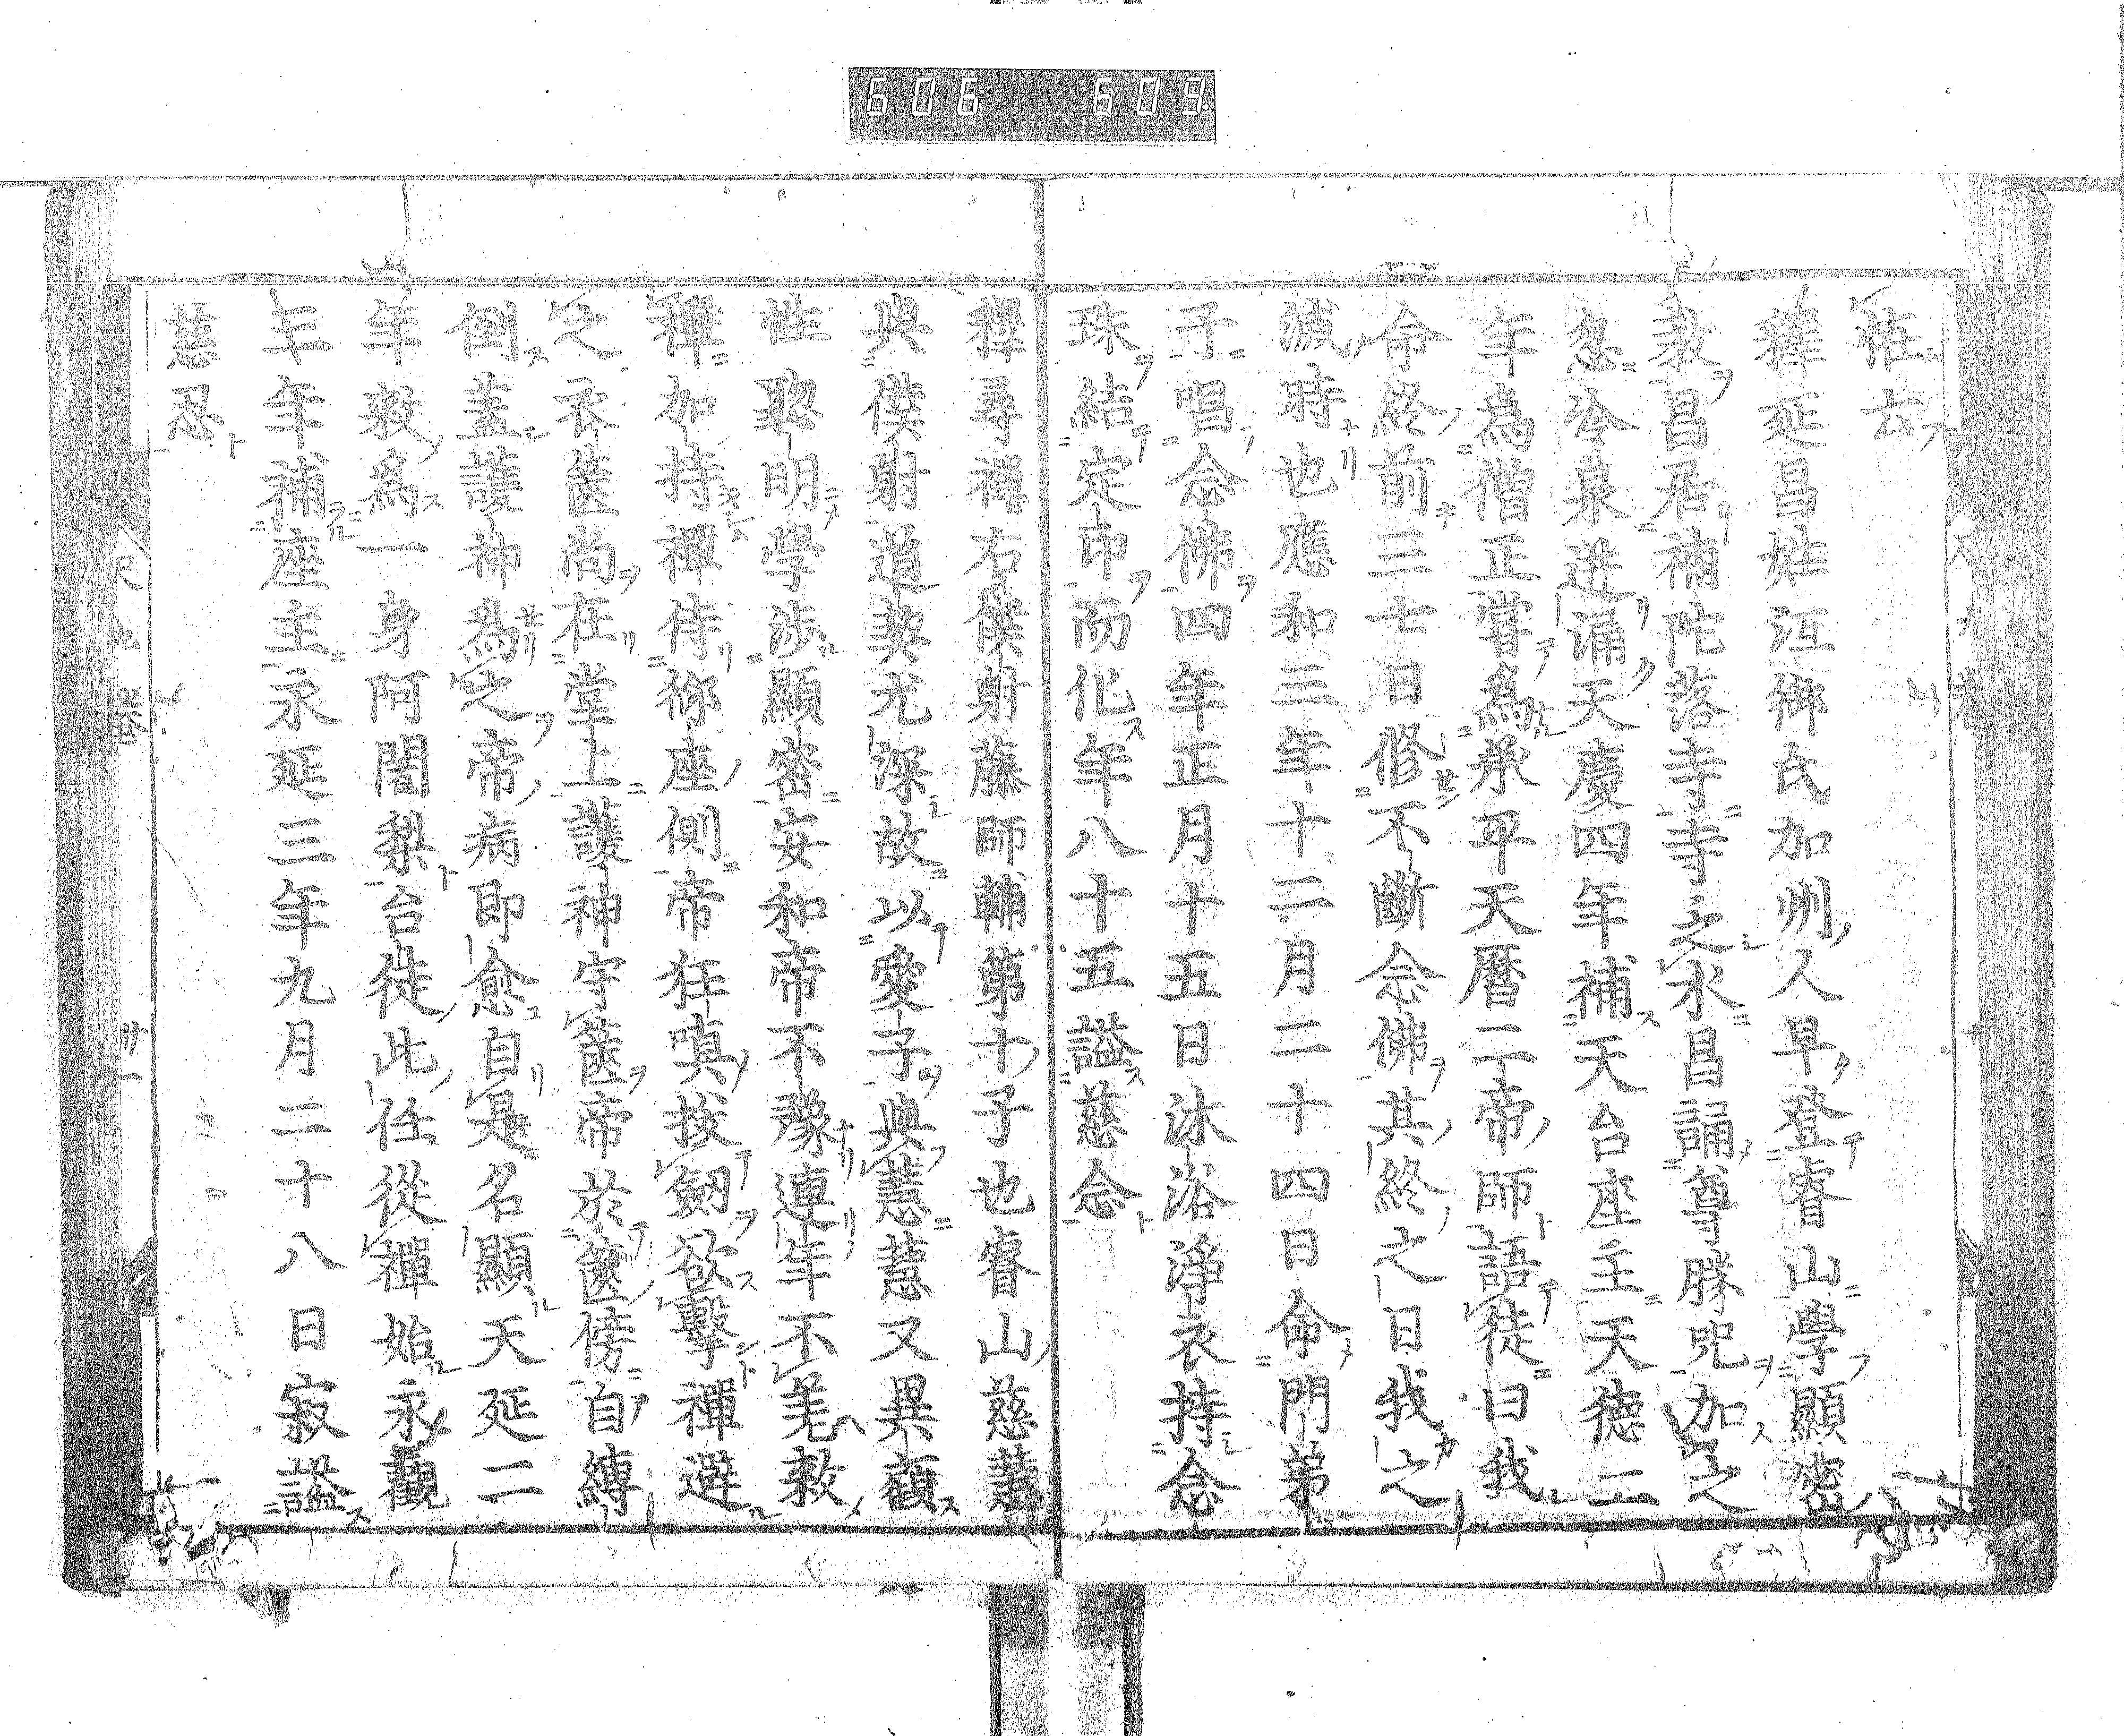 606 609
恠云
釋延昌姓江御氏加州人早登睿山學顯密
教昌居補陀落寺寺之水昌誦尊勝咒加之
忽冷泉迸涌天慶四年補天台座主天德二
年爲僧正嘗爲承平天曆二帝師語徒曰我
命終前三七日修不斷念佛其終之日我之
滅時也應和三年十二月二十四日命門弟
子唱念佛四年正月十五日沐浴淨衣持念
珠結定印而化年八十五謚慈念
釋尋禪右僕射藤師輔第十子也睿山慈慧
與僕射道契尤深故以愛子與慧慧又異顧
性聡明學涉顯密安和帝不豫連年不羌敕
禪加持禪侍御座側帝狂嗔拔劔欲擊禪避
之衣篋尚在堂上護神守篋帝於篋傍自縛
倒蓋護神爲之帝病即愈自是名顯天延二
年敕爲一身阿闍梨台徒此任從禪始永觀
三年補座主永延三年九月二十八日寂謚
慈忍